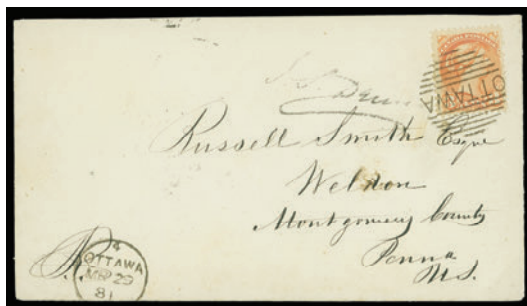 OTTAWA
Russell Smith Esqre
Weldon
Montgomery County
Penna
U.S.
4
OTTAWA
MR 29
81